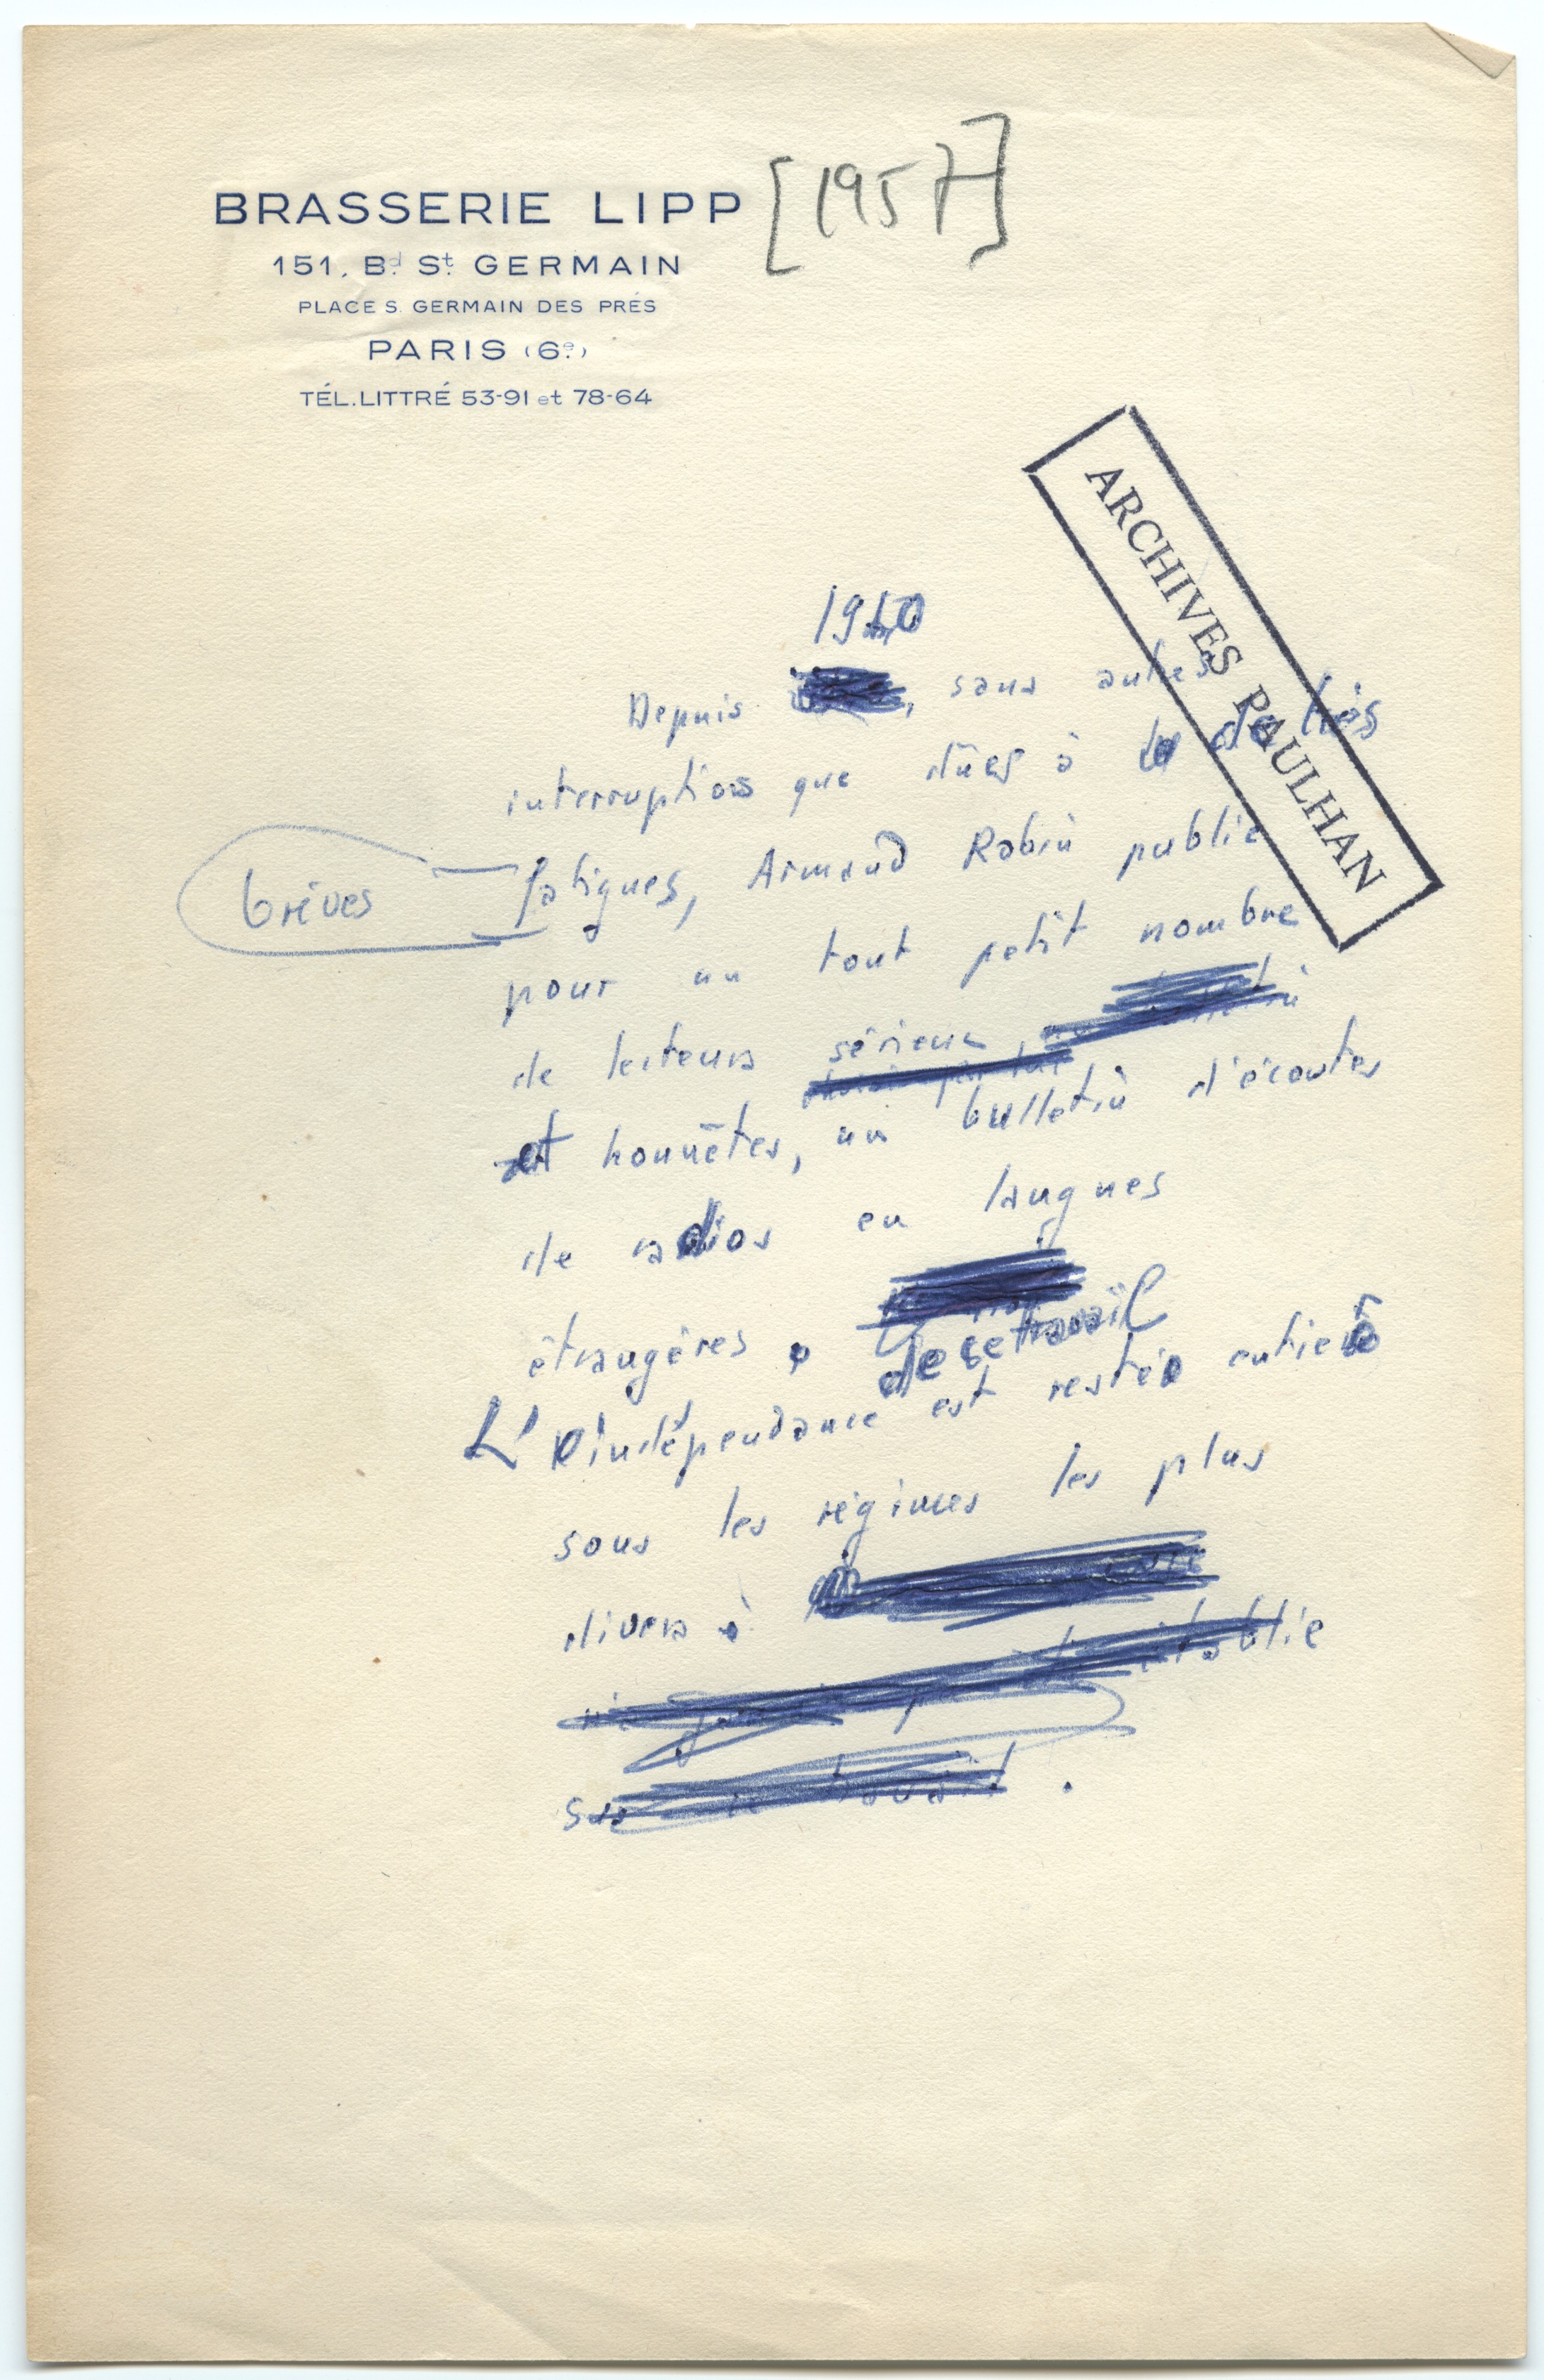 BRASSERIE LIPP
[1957]
151, Bd St GERMAIN
PLACE S. GERMAIN DES PRÉS
PARIS (6e)
TÉL. LITTRÉ 53-91 et 78-64
ARCHIVES PAULHAN
1940
Depuis , sans autres
interruptions que dûes à de très
brèves
fatigues, Armand Robin publie
pour un tout petit nombre
de lecteurs sérieux
et honnêtes, un bulletin d'écoutes
de radios en langues
étrangères.
de ce travail
L'indépendance est restée entière
sous les régimes les plus
divers
établie